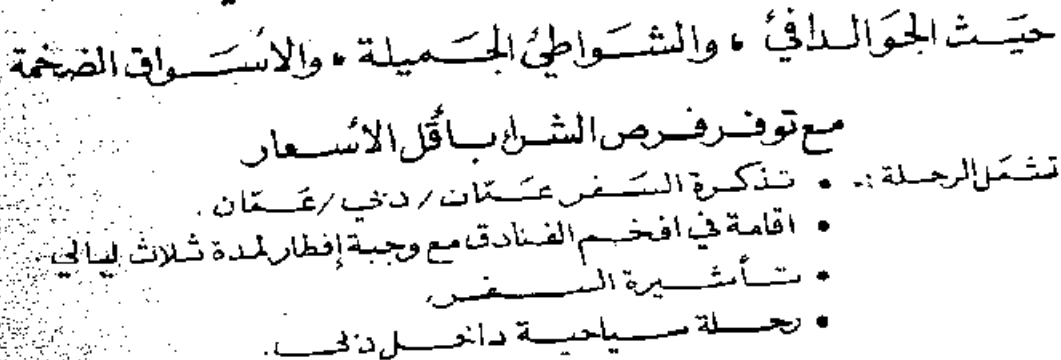 حيث الجو الدافئ ، والشواطئ الجميلة ، والأسواق الضخمة
مع توفر فرص الشراء بأقل الأسعار
تشمل الرحلة :- • تذكرة السفر عمّان / دبي / عمّان .
• اقامة في افخم الفنادق مع وجبة إفطار لمدة ثلاث ليالي
• تأشيرة السفر
• رحلة سياحية داخل دبي .